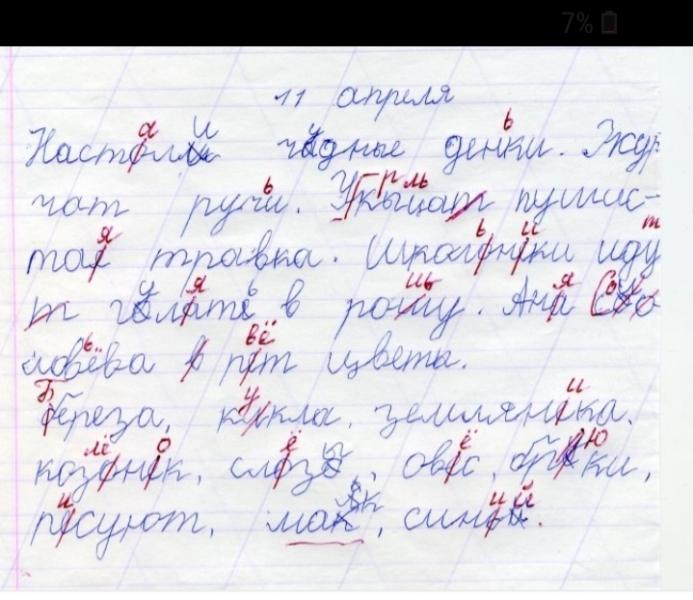 7%
11 апреля
Настали чудные деньки. Жур-
чат ручьи. У крыльца пушис-
тая травка. Школьники идут
гулять в рощу. Аня Со-
ловьёва рвёт цветы.
Береза, кукла, земляника,
козлёнок, слёзы, овёс, брюки,
рисуют, маяк, синий.